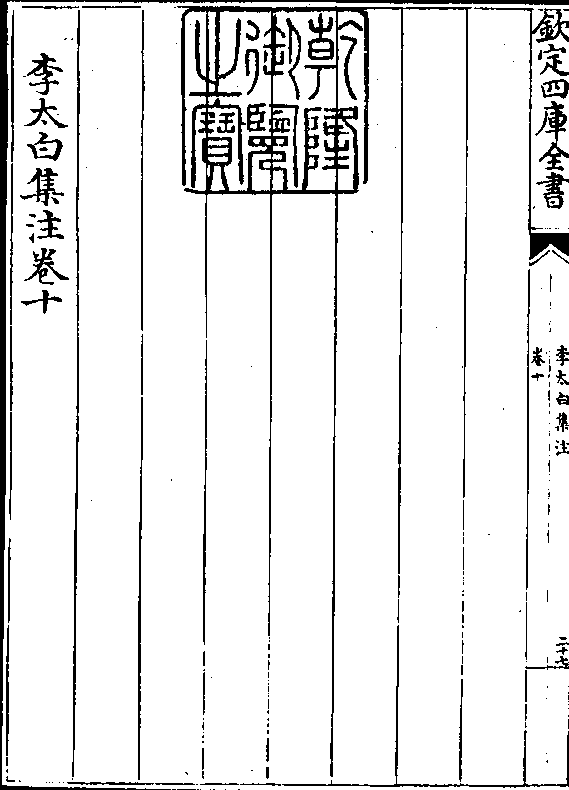 欽定四庫全書
李太白集注
卷十
二十七
乾隆
御覽
之寶
李太白集注卷十